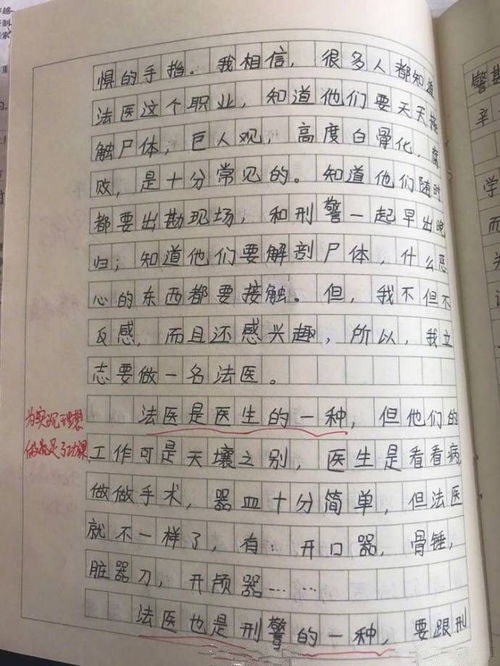 惧的手指。我相信，很多人都知道
法医这个职业，知道他们要天天接
触尸体，巨人观，高度白骨化，腐
败，是十分常见的。知道他们随时
都要出勘现场，和刑警一起早出晚
归；知道他们要解剖尸体，什么恶
心的东西都要接触。但，我不但不
反感，而且还感兴趣，所以，我立
志要做一名法医。
法医是医生的一种，但他们的
为实现理想
做着足了功课
工作可是天壤之别，医生是看看病
做做手术，器皿十分简单，但法医
就不一样了，有：开口器，骨锤，
脏器刀，开颅器……
法医也是刑警的一种，要跟刑
警勘
辛
学
而